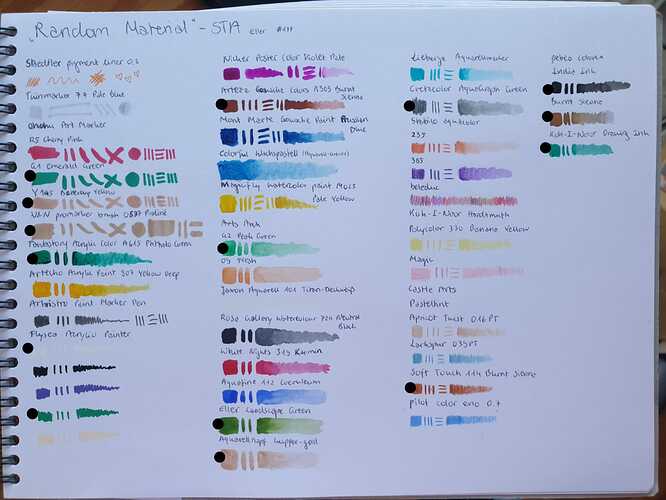 "Random Material" - STA eller
Staedtler pigment liner 0,3
Twinmarker 77 Pale Blue
Ohuhu Art Marker
R5 Cherry Pink
G1 Emerald Green
Yellow
W&N promarker brush Praline
Acrylic Color A613 Phthalo Green
Artecho Acrylic Paint 307 Yellow Deep
Artistro Paint Marker Pen
Flysea Acrylic Painter
Nicker Poster Color Violet Pale
Arteza Gouache Colors A303 Burnt Sienna
Mont Marte Gouache Paint Prussian Blue
Colorful
Magicfly Watercolor paint Pale Yellow
Arts Arch
G2 Green
09
Jaxon Aquarell 101
Rosa Gallery Watercolour 724 Neutral Black
White Nights 319 Karmin
Aquafine 112 Coeruleum
Eller Landscape Green
Aquarellnapf kupfer-gold
Aquarellmarker
Cretacolor AquaGraph Green
Stabilo aquacolor
235
365
beleduc
Koh-I-Noor Hardtmuth
Polycolor 330 Banana Yellow
Magic
Castle Arts
Pastellint
Apricot Twist 016PT
Larkspur 039PT
Soft Touch 114 Burnt Sienna
pilot color eno 0.7
pebeo colorex
India Ink
Burnt Sienne
Koh-I-Noor Drawing Ink